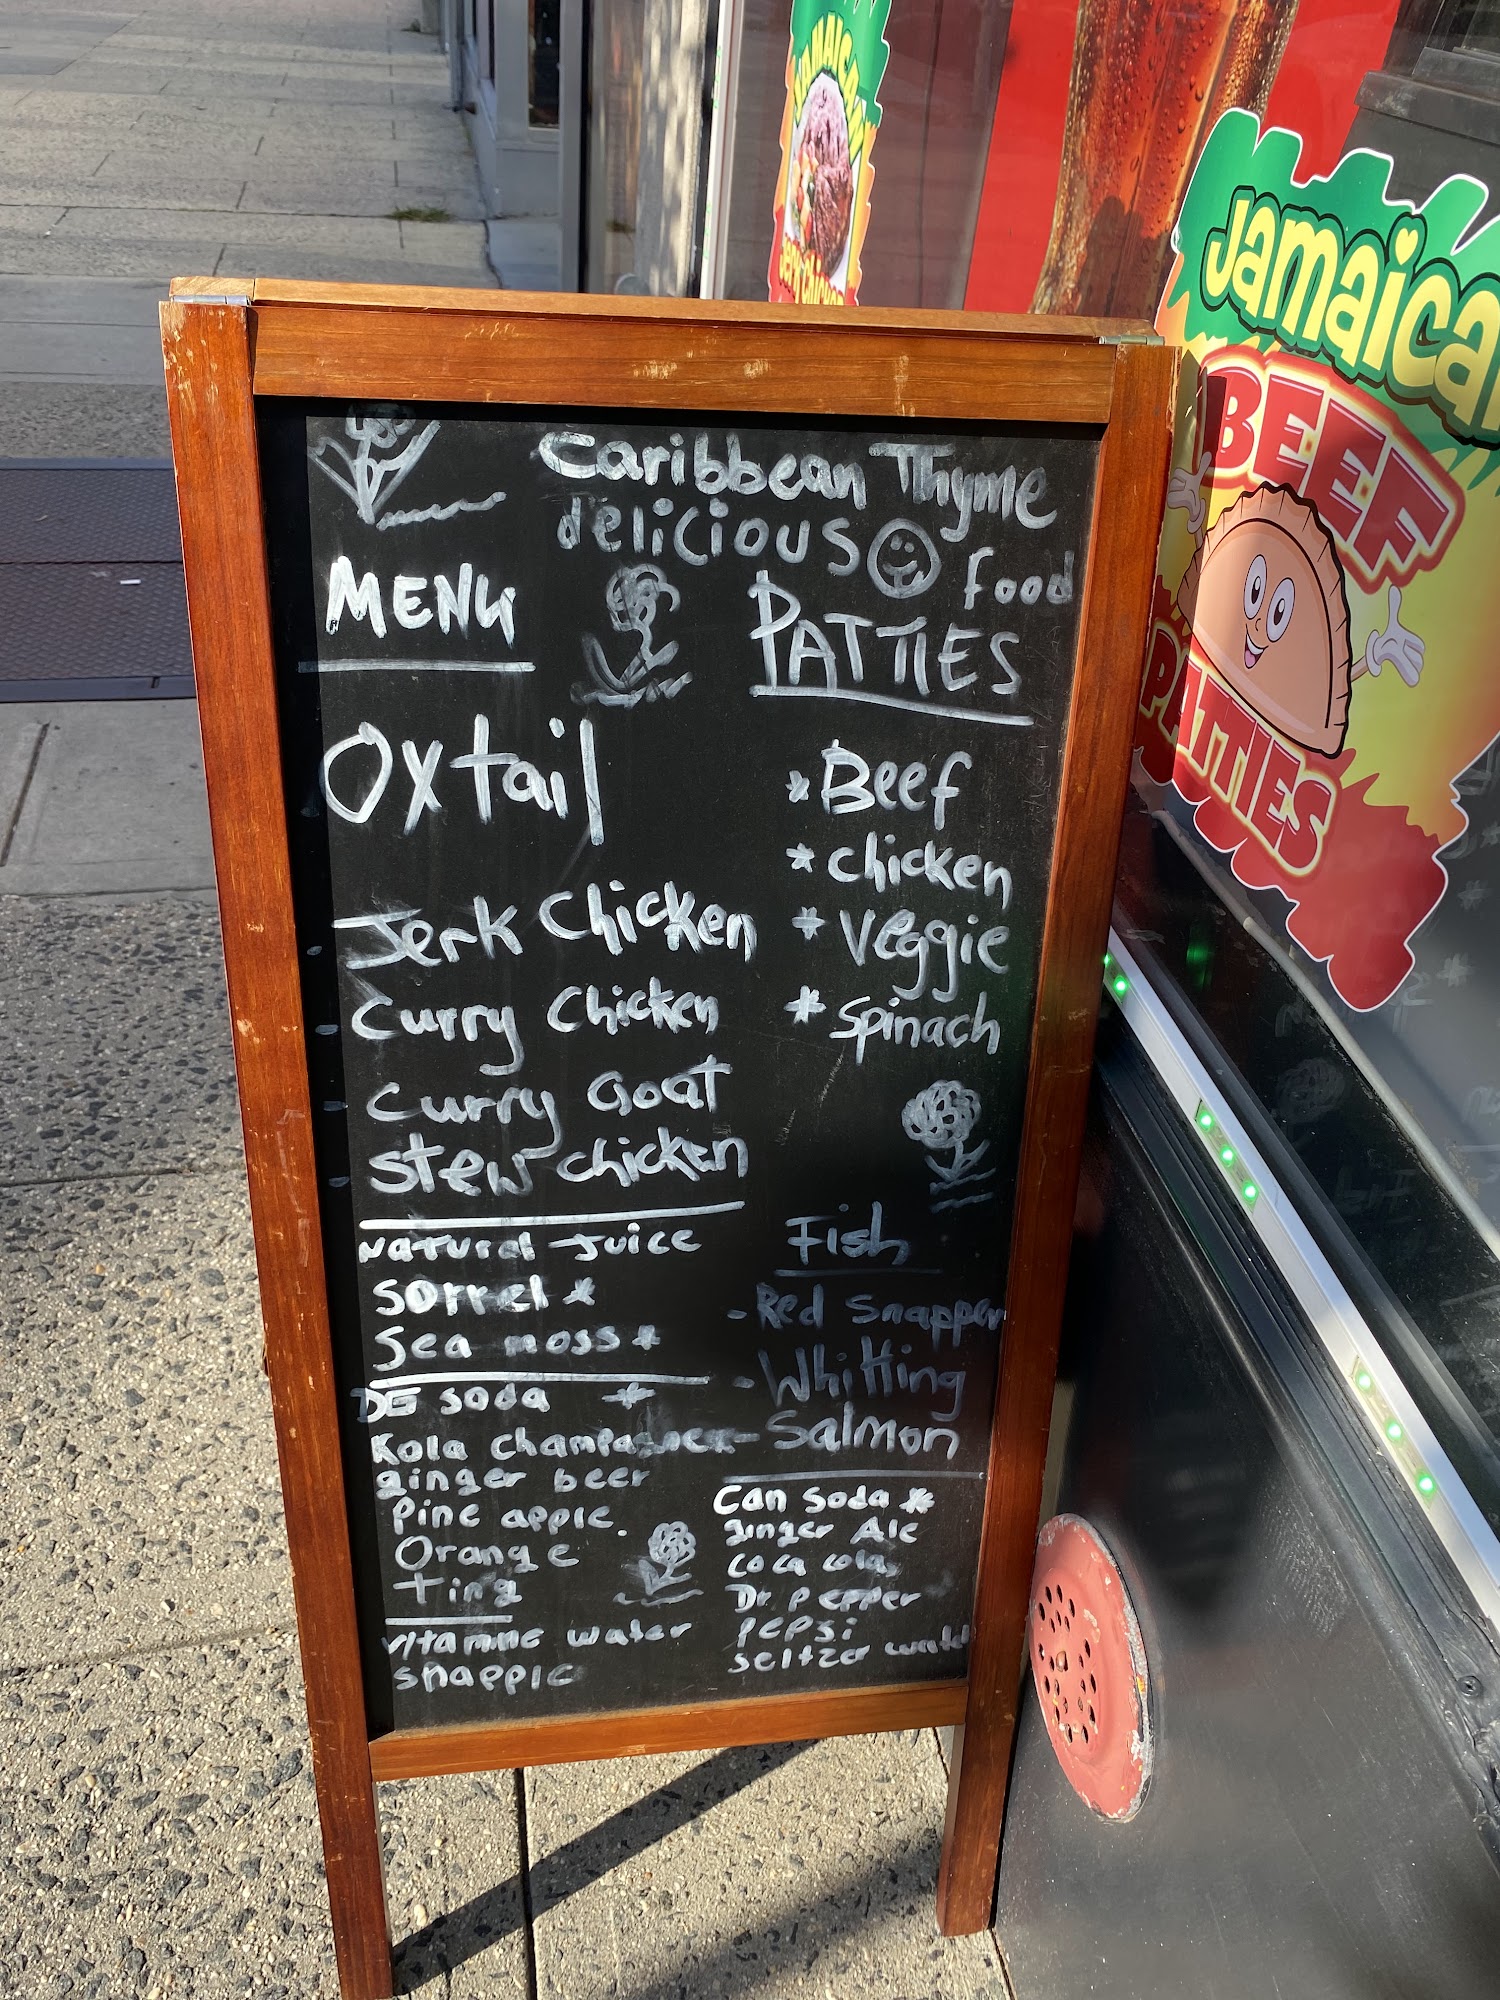 Caribbean Thyme
delicious food
MENU
Oxtail
- Jerk Chicken
- Curry Chicken
- Curry Goat
- Stew chicken
Natural Juice
Sorrel *
Sea moss *
DG soda *
Kola champagne
ginger beer
Pine apple.
Orange
Ting
vitamine water
snapple
PATTIES
* Beef
* chicken
* Veggie
* Spinach
Fish
- Red Snapper
- Whitting
- Salmon
Can Soda *
ginger Ale
coca cola,
Dr. pepper
pepsi
seltzer water
JAMAICAN
Jerk Chicken
Jamaican
BEEF
PATTIES